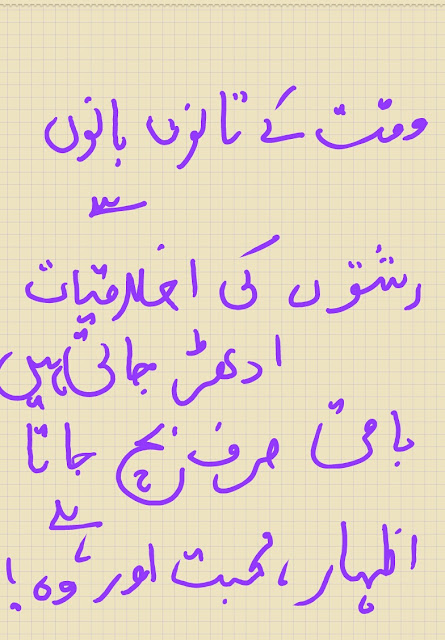 وقت کے تانوں بانوں
سے
رشتوں کی اخلاقیات
ادھڑ جاتی ہیں
باقی صرف بچ جاتا
ہے
اظہار، محبت اور وہ!